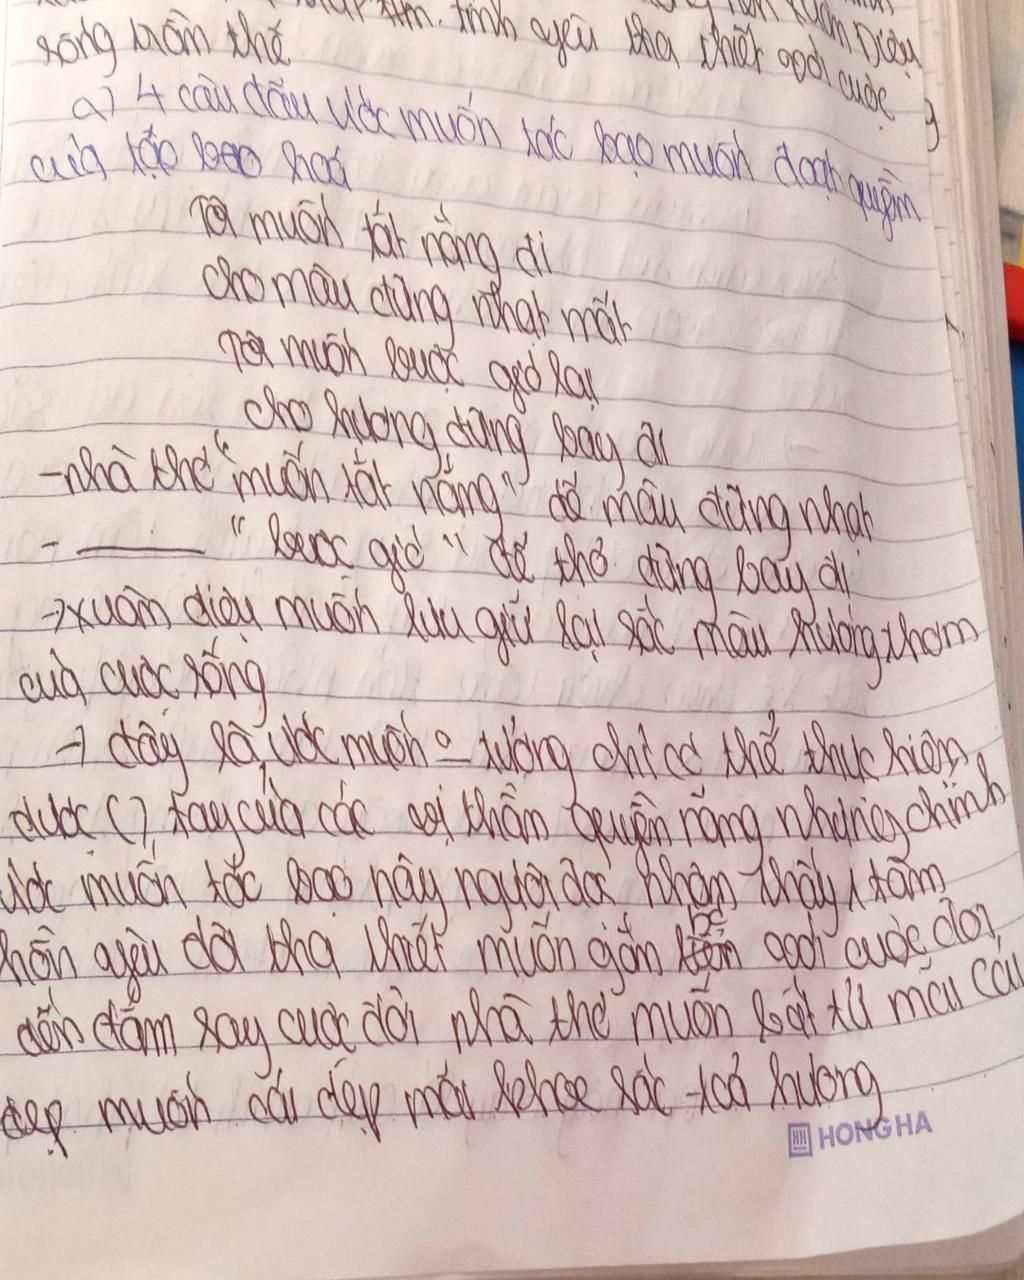 tình yêu tha thiết với cuộc
sống trần thế
a) 4 câu đầu ước muốn táo bạo muốn đoạt quyền
của tạo hoá
Tôi muốn tắt nắng đi
cho màu đừng nhạt mất
Tôi muốn buộc gió lại
cho hương đừng bay đi
- nhà thơ "muốn tắt nắng" để màu đừng nhạt
- "buộc gió" để thơ đừng bay đi
→ xuân diệu muốn lưu giữ lại sắc màu hương thơm
của cuộc sống
→ đây là ước muốn o tưởng chỉ có thể thực hiện
được () tay của các vị thần quyền năng nhưng chính
ước muốn táo bạo này người đọc nhận thấy 1 tâm
hồn yêu đời tha thiết muốn gắn bó với cuộc đời
đến đắm say cuộc đời nhà thơ muốn bất tử mãi cái
đẹp muốn cái đẹp mãi khoe sắc toả hương
HONG HA